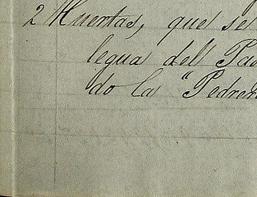 2 Huertas, que se
legua del Pas
do la "Pedrer